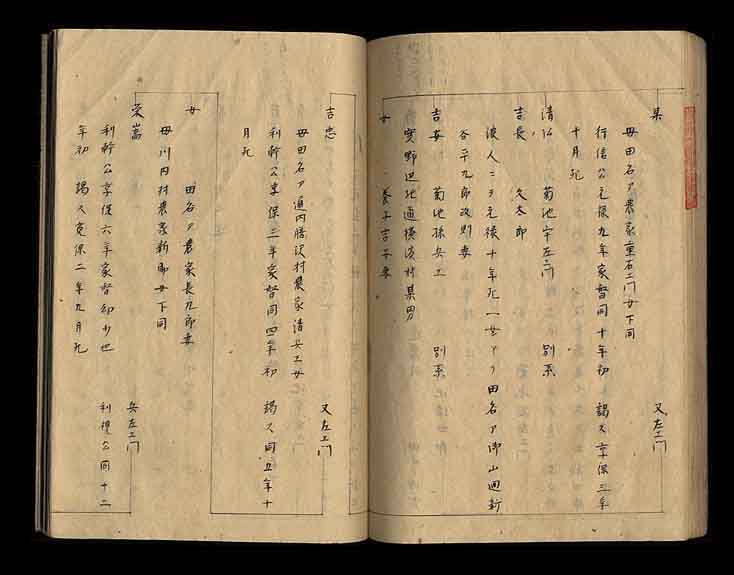 某 又左エ門
母田名ア農家重右エ門女下同
行信公元禄九年家督同十年初 謁ス享保三年
十月死
清 菊池宇左エ門 別系
吉長 久太郎
浪人ニテ元禄十年死一女アリ田名ア御山廻新
谷平九郎改則妻
吉安 菊地孫兵エ 別系
實野辺地通横浜村某男
女 養子吉安妻
吉忠 又左エ門
母田名ア通内膳沢村農家清兵エ女
利幹公享保三年家督同四年初 謁ス同五年十
月死
女 田名ア農家長九郎妻
母川内村農家新助女下同
栄嵩 兵左エ門
利幹公享保六年家督幼少也 利視公同十二
年初 謁ス寛保二年九月死